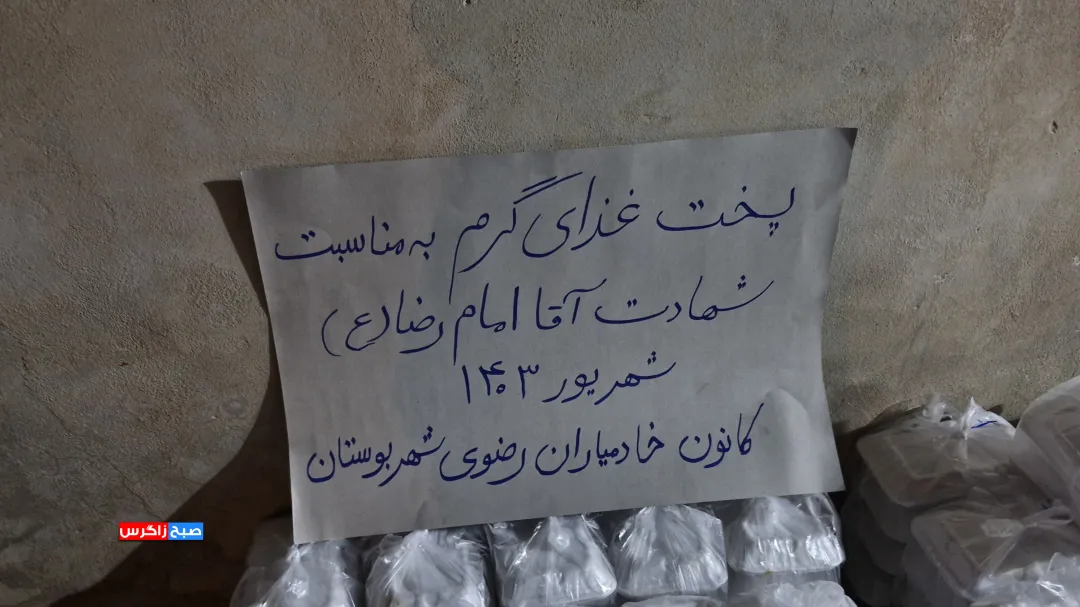 پخت غذای گرم به مناسبت
شهادت آقا امام رضا (ع)
شهریور ۱۴۰۳
کانون خادمیاران رضوی شهر بوستان
صبح زاگرس